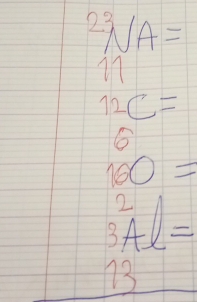 23 NA=
11
12 C=
6
16 O =
2
3 Al=
13